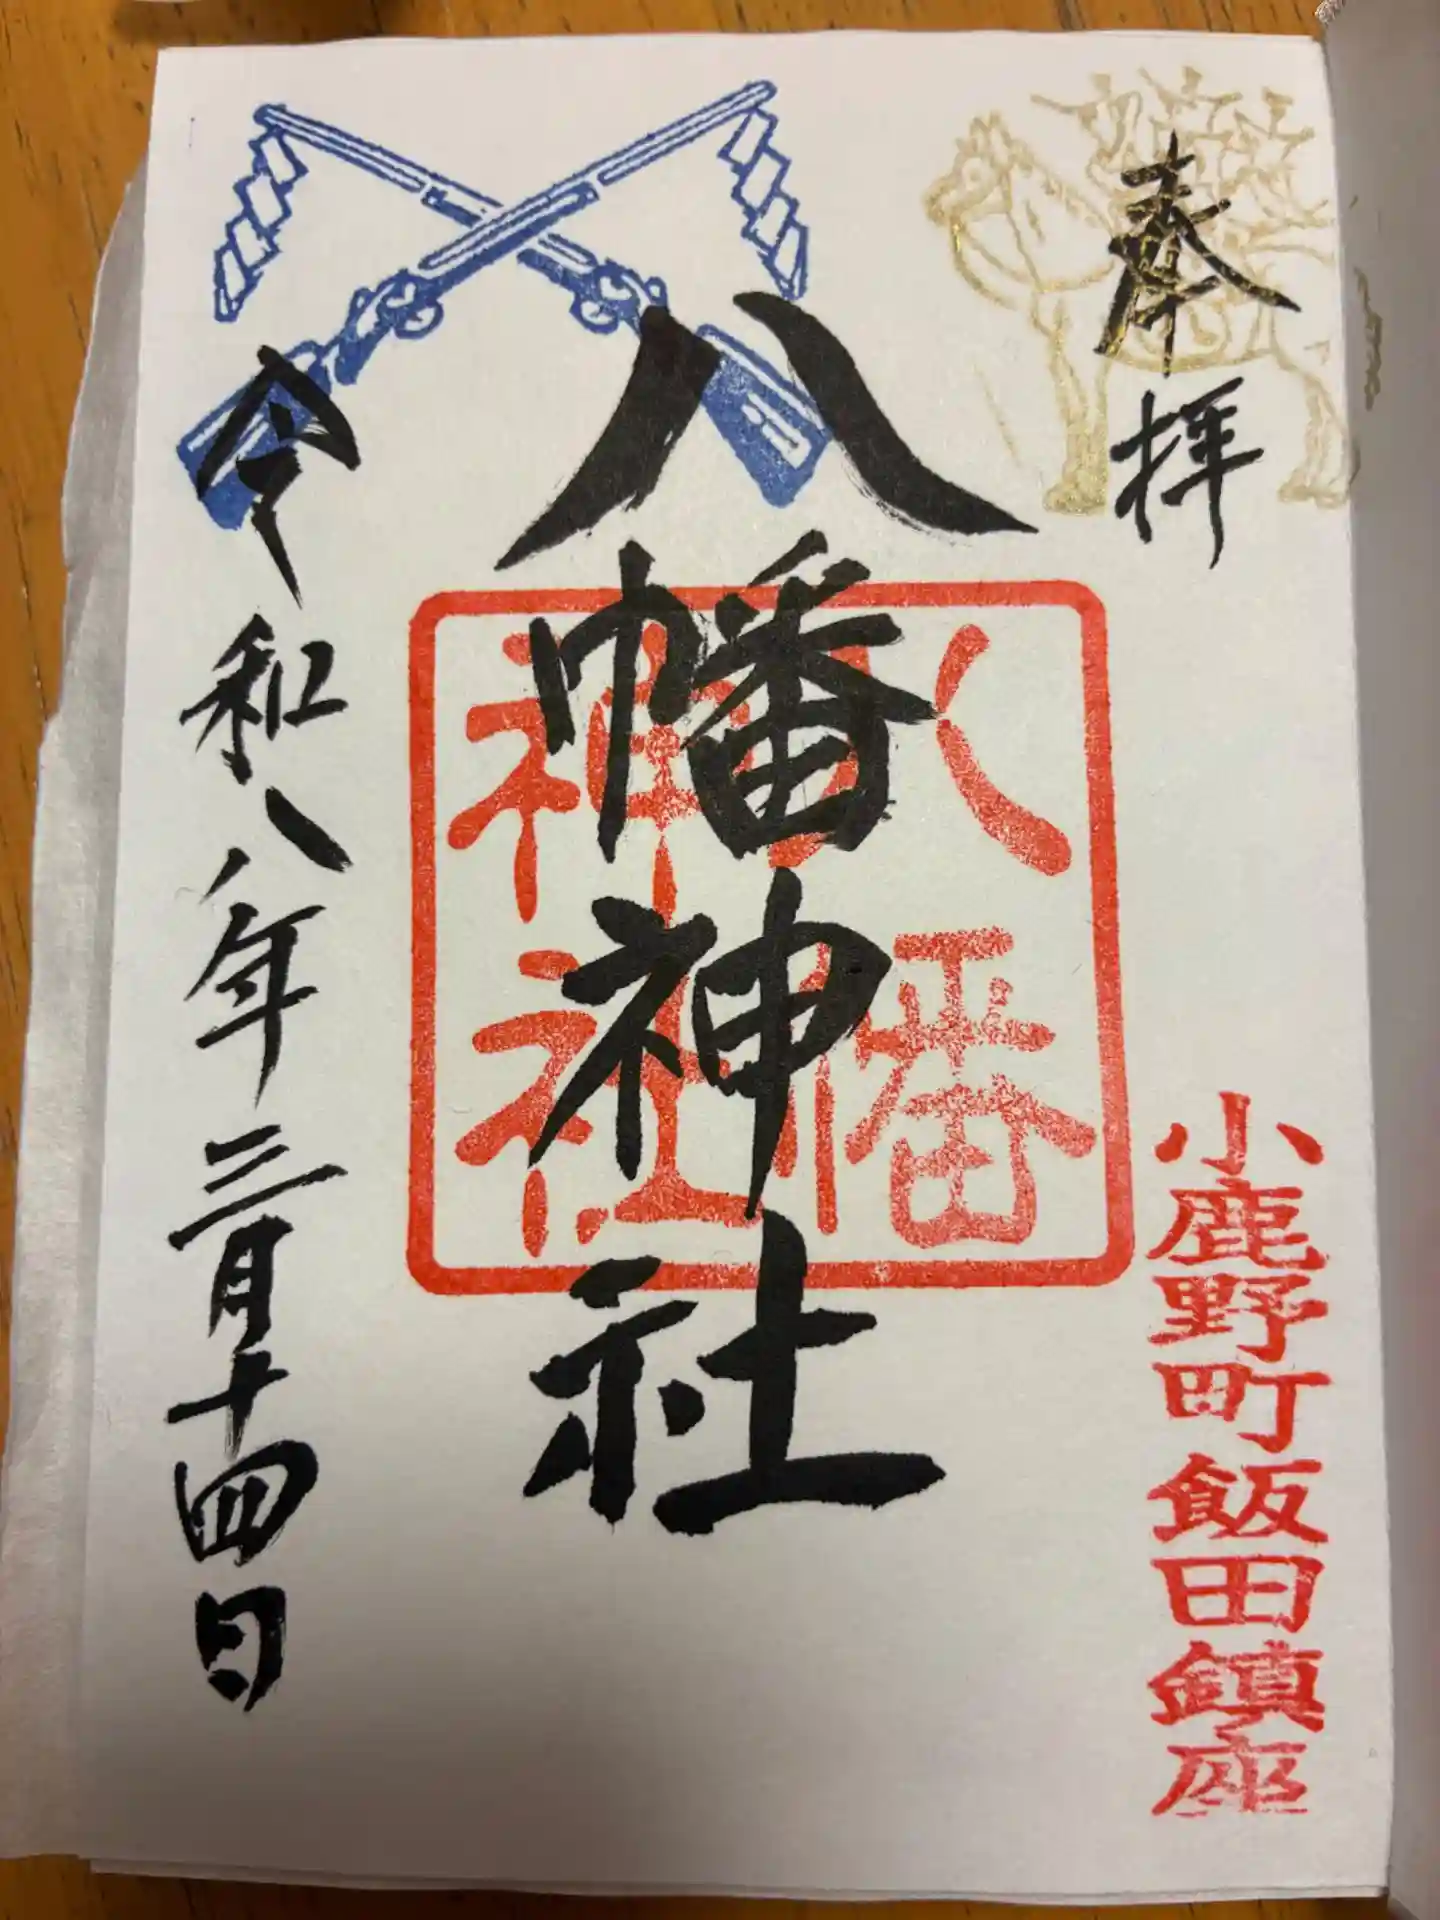 奉拝
小鹿野町飯田鎮座
八幡神社
八幡
神社
令和八年三月十四日